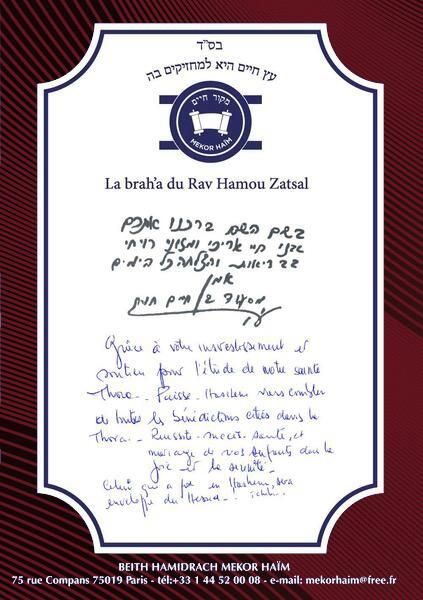 בס"ד
עץ חיים היא למחזיקים בה
מקור חיים
MEKOR HAÏM
La brah'a du Rav Hamou Zatsal
בשם השם ברכנו אתכם
בבני חיי אריכי ומזוני רויחי
בבריאות והצלחה כל הימים
אמן
Grâce à votre investissement et
soutien pour l'étude de notre sainte
Thora - Puisse - Hachem vous combler
de toutes les bénédictions citées dans la
Thora - Réussite - succès - santé, et
mariage de vos enfants dans la
joie et la sérénité -
Celui qui a foi en Hachem, sera
enveloppé du Hessed
BEITH HAMIDRACH MEKOR HAÏM
75 rue Compans 75019 Paris - tél:+33 1 44 52 00 08 - e-mail: mekorhaim@free.fr